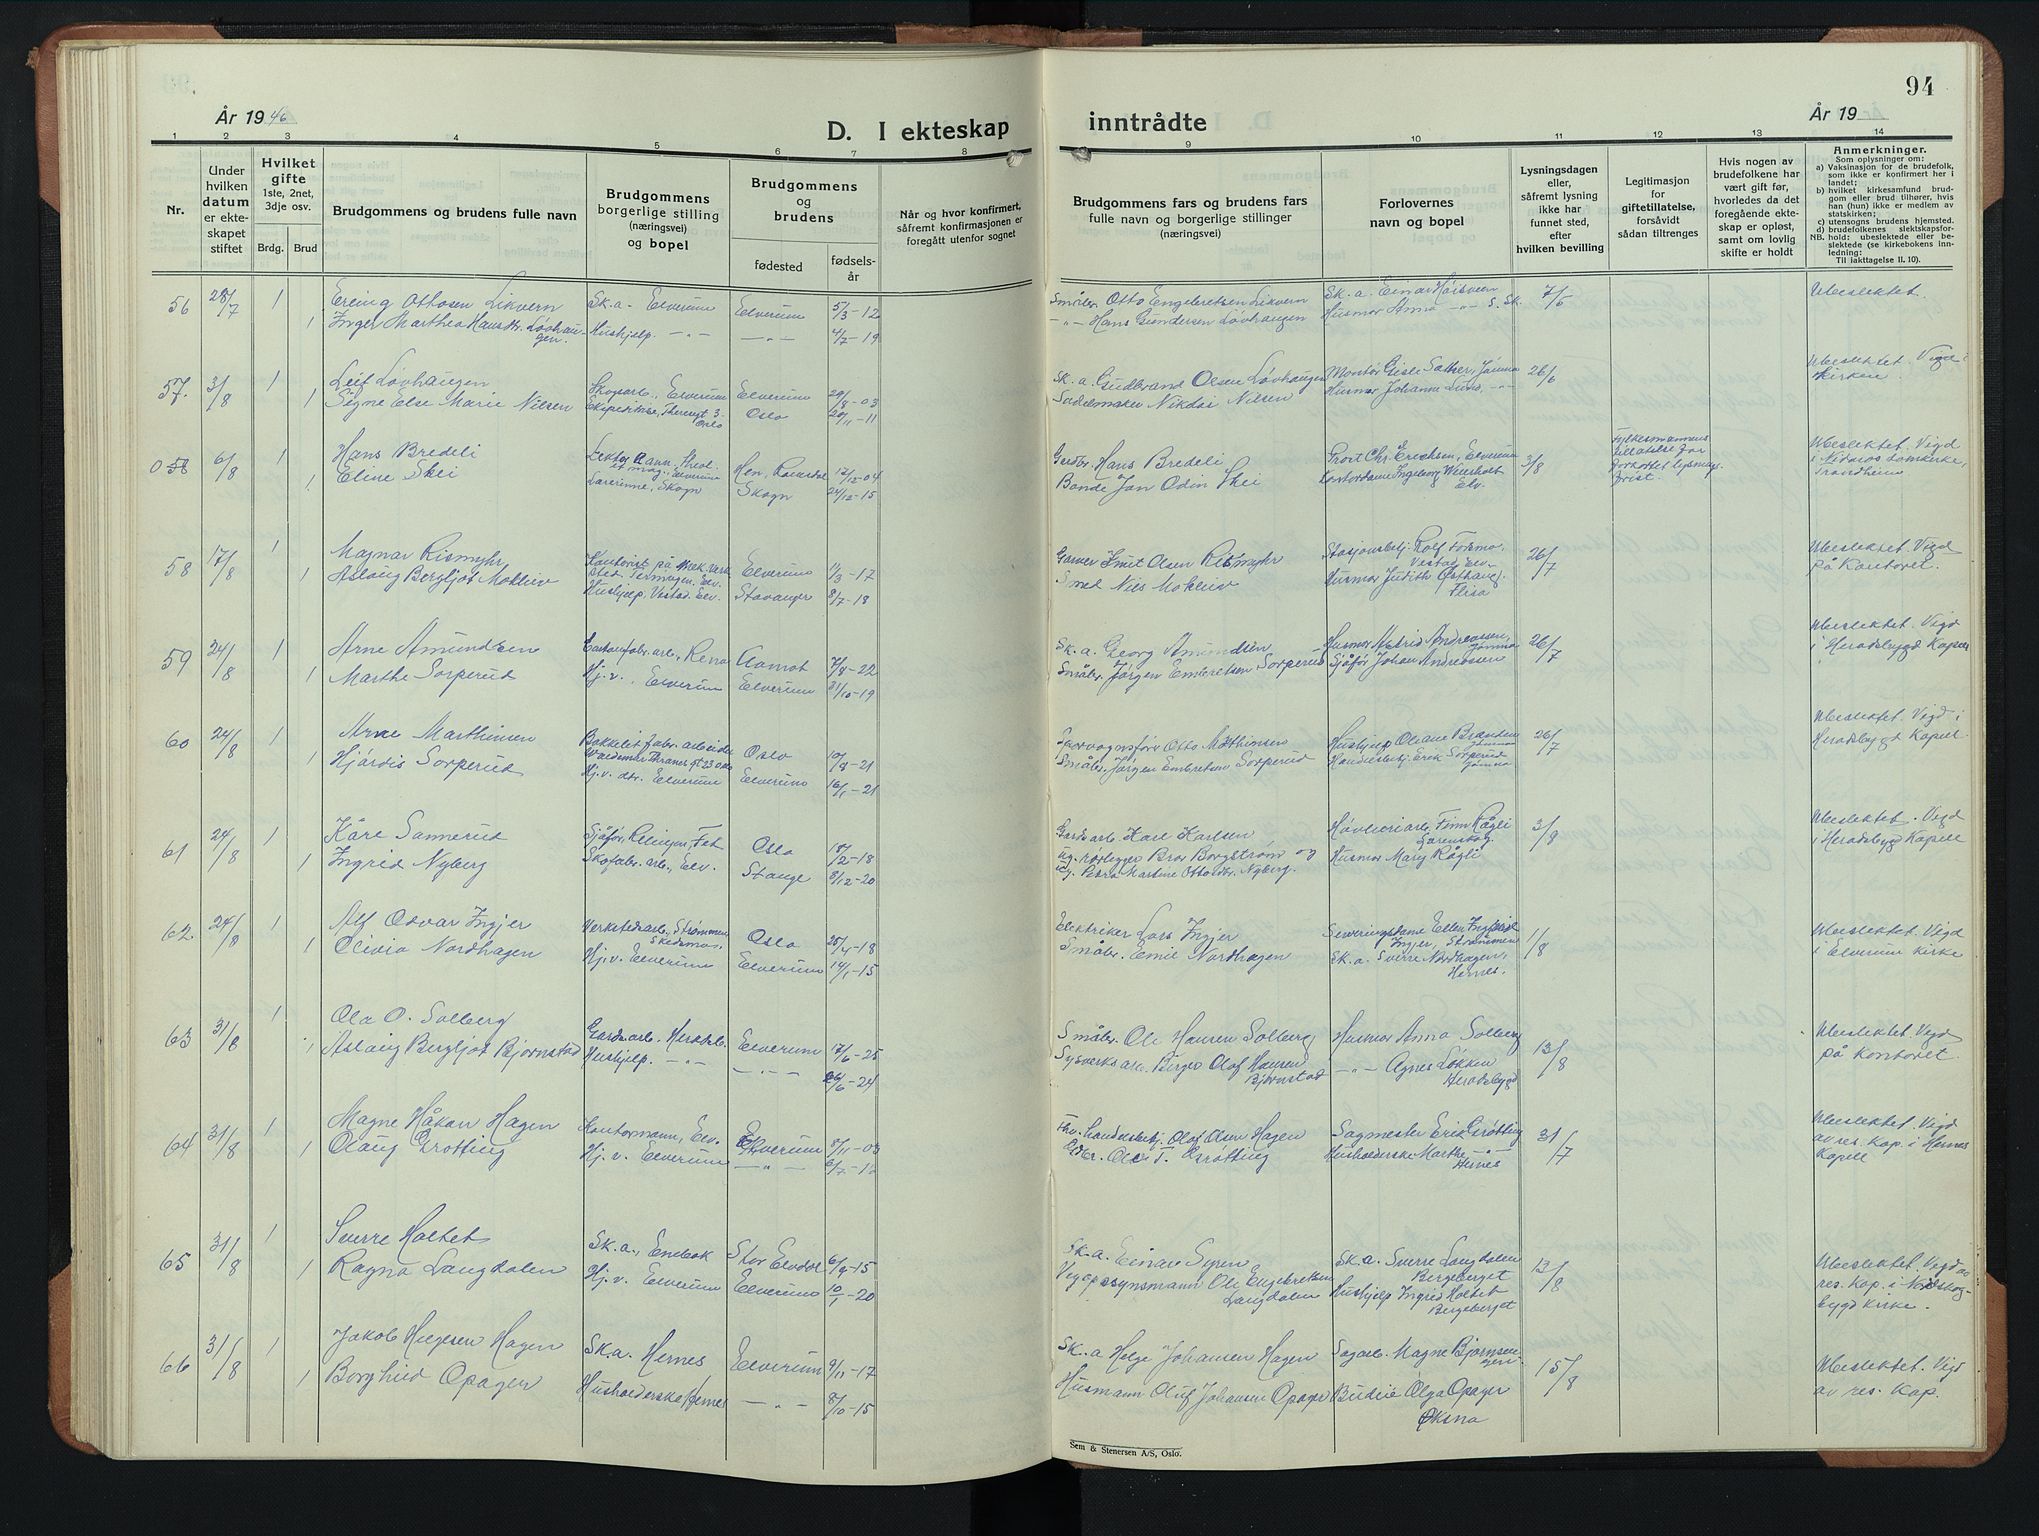 94
År 1946
D. I ekteskap inntrådte
År 19
1 2 3 4 5 6 7 8 9 10 11 12 13 14
Nr.
Under hvilken datum er ekteskapet stiftet
Hvilket gifte 1ste, 2net, 3dje osv.
Brdg. Brud
Brudgommens og brudens fulle navn
Brudgommens borgerlige stilling (næringsvei) og bopel
Brudgommens og brudens
fødested
fødselsår
Når og hvor konfirmert, såfremt konfirmasjonen er foregått utenfor sognet
Brudgommens fars og brudens fars fulle navn og borgerlige stillinger (næringsvei)
Forlovernes navn og bopel
Lysningsdagen eller, såfremt lysning ikke har funnet sted, efter hvilken bevilling
Legitimasjon for giftetillatelse, forsåvidt sådan tiltrenges
Hvis nogen av brudefolkene har vært gift før, hvorledes da det foregående ekteskap er opløst, samt om lovlig skifte er holdt
Anmerkninger.
Som oplysninger om:
a) Vaksinasjon for de brudefolk, som ikke er konfirmert her i landet;
b) hvilket kirkesamfund brudgom eller brud tilhører, hvis han (hun) ikke er medlem av statskirken;
c) utensogns brudens hjemsted.
d) brudefolkenes slektskapsforhold: ubeslektede eller beslektede (se kirkebokens innledning:
NB. Til iakttagelse II. 10).
56 28/7 1 Erling Ottosen Likvern Sk.a. Elverum Elverum 5/3-12 Småbr. Otto Engebretsen Likvern Sk.a. Einar Hørsveen 7/6 Ubeslektet.
1 Inger Marthea Hansdtr. Løvhaugen. Hushjelp. -"- -"- 4/7-19 -"- Hans Gundersen Løvhaugen Husmor Anna -"- S.Sk.
57. 3/8 1 Leif Løvhaugen Skogsarb., Elverum Elverum 29/8-03 Sk.a. Gudbrand Olsen Løvhaugen Montør Gisle Sather, Jømna 26/6 Ubeslektet. Vigd i kirken
1 Signe Else Marie Nilsen Oslo Oslo 20/11-11 Nikolai Nilsen Husmor Johanne Lund, -"-
058 6/8 1 Hans Bredeli Lektor Elverum Hen, Romsdal 12/12-04 Gardbr. Hans Bredeli Prost Chr. Erichsen, Elverum 3/8 Fylkesmannens tillatelse for forkortet lysningsfrist. Ubeslektet. Vigd i Nidaros Domkirke, Trondheim
1 Eline Skei Lærerinne, Skogn Skogn 24/12-15 Bonde Jon Odin Skei Ingeborg Weierholt Elv.
58 17/8 1 Magnar Rismyhr Kontorist på Mek. verksted. Elv. Elverum 11/3-17 Garver Knut Olsen Rismyhr Stasjonsbetj. Rolf Formo, Vestad Elv. 26/7 Ubeslektet. Vigd på Kontoret.
1 Aslaug Bergljot Mokleiv Hushjelp, Vestad. Elv. Stavanger 8/7-18 Smed Nils Mokleiv Husmor Judith Østhaug, Flisa
59 24/8 1 Arne Amundsen Cartonfabr.arb., Rena Aamot 7/8-22 Sk.a. Georg Amundsen Husmor Astrid Andreassen, Jømna 26/7 Ubeslektet. Vigd i Heradsbygd Kapell
1 Marthe Sorperud Hj.v., Elverum Elverum 31/10-19 Småbr. Jørgen Embretsen Sorperud Sjåfør Johan Andreassen
60 24/8 1 Arne Marthinsen Bakkelit fabr. arbeider Waldemar Thranes gt 23 Oslo Oslo 10/8-21 Sporvognsfører Otto Mathinsen Hushjelp Oliane Brenden Jømna 26/7 Ubeslektet. Vigd i Heradsbygd Kapell.
1 Hjørdis Sorperud Hj.v. dtr. Elverum Elverum 16/1-21 Småbr. Jørgen Embretsen Sorperud Handelsbetj. Erik Sorperud Jømna
61 24/8 1 Kåre Sannerud Sjåfør, Rælingen, Fet Oslo 18/2-18 Gardsarb. Karl Karlsen Høvleriarb. Finn Rågli Lørenskog 3/8 Ubeslektet. Vigd i Heradsbygd Kapell
1 Ingrid Nyberg Skofabr.arb., Elv. Stange 8/12-20 ug. rørlegger Bror Borgstrøm og ug. Petra Martine Ottosdtr. Nyberg. Husmor Mary Rågli
62. 24/8 1 Alf Osvar Ingjer Verkstedarb., Strømmen Skedsmo, Oslo 25/4-18 Elektriker Lars Ingjer Serveringsdame Ellen Ingjer, Strømmen 11/8 Ubeslektet. Vigd i Elverum kirke
1 Olivia Nordhagen Hj.v. Elverum Elverum 14/1-15 Småbr. Emil Nordhagen Sk.a. Sverre Nordhagen, Hernes.
63 31/8 1 Ola O. Solberg Gardsarb. Heradsb. Elverum 17/6-25 Småbr. Ole Hansen Solberg Husmor Anna Solberg 13/8 Ubeslektet. Vigd på kontoret.
1 Aslaug Bergljot Bjørnstad Hushjelp. -"- -"- 26/6-24 Birger Olaf Hansen Bjørnstad -"- Agnes Løkken Heradsbygd
64 31/8 1 Magne Håkon Hagen Kontormann, Elv. Elverum 8/11-03 Fhv. handelsbetj. Olaf Olsen Hagen Sagmester Erik Grøtting 31/7 Ubeslektet. Vigd av res. Kap. i Hernes Kapell
1 Olaug Grøtting Hj.v. Elverum -"- 6/7-12 Gdbr. Ole T. Grøtting Husholderske Marthe -"- Hernes
65 31/8 1 Sverre Holtet Sk.a., Enebak Stor Elvdal 6/9-15 Sk.a. Einar Syren Sk.a. Sverre Langdalen Bergeberget 13/8 Ubeslektet. Vigd av res. Kap. i Nordskogbygd kirke.
1 Ragna Langdalen Hj.v. Elverum Elverum 10/1-20 Vegoppsynsmann Ole Engebretsen Langdalen Hushjelp Ingrid Holtet Bergeberget
66 31/8 1 Jakob Helgesen Hagen Sk.a. Hernes Elverum 9/11-17 Sk.a Helge Johansen Hagen Sagarb. Magne Bjørnsengen. 15/8 Ubeslektet. Vigd av res. Kap.
1 Borghild Opager Husholderske Hernes -"- 8/10-15 Husmann Oluf Johansen Opager Budeie Olga Opager Øksna
Sem & Stenersen A/S, Oslo.